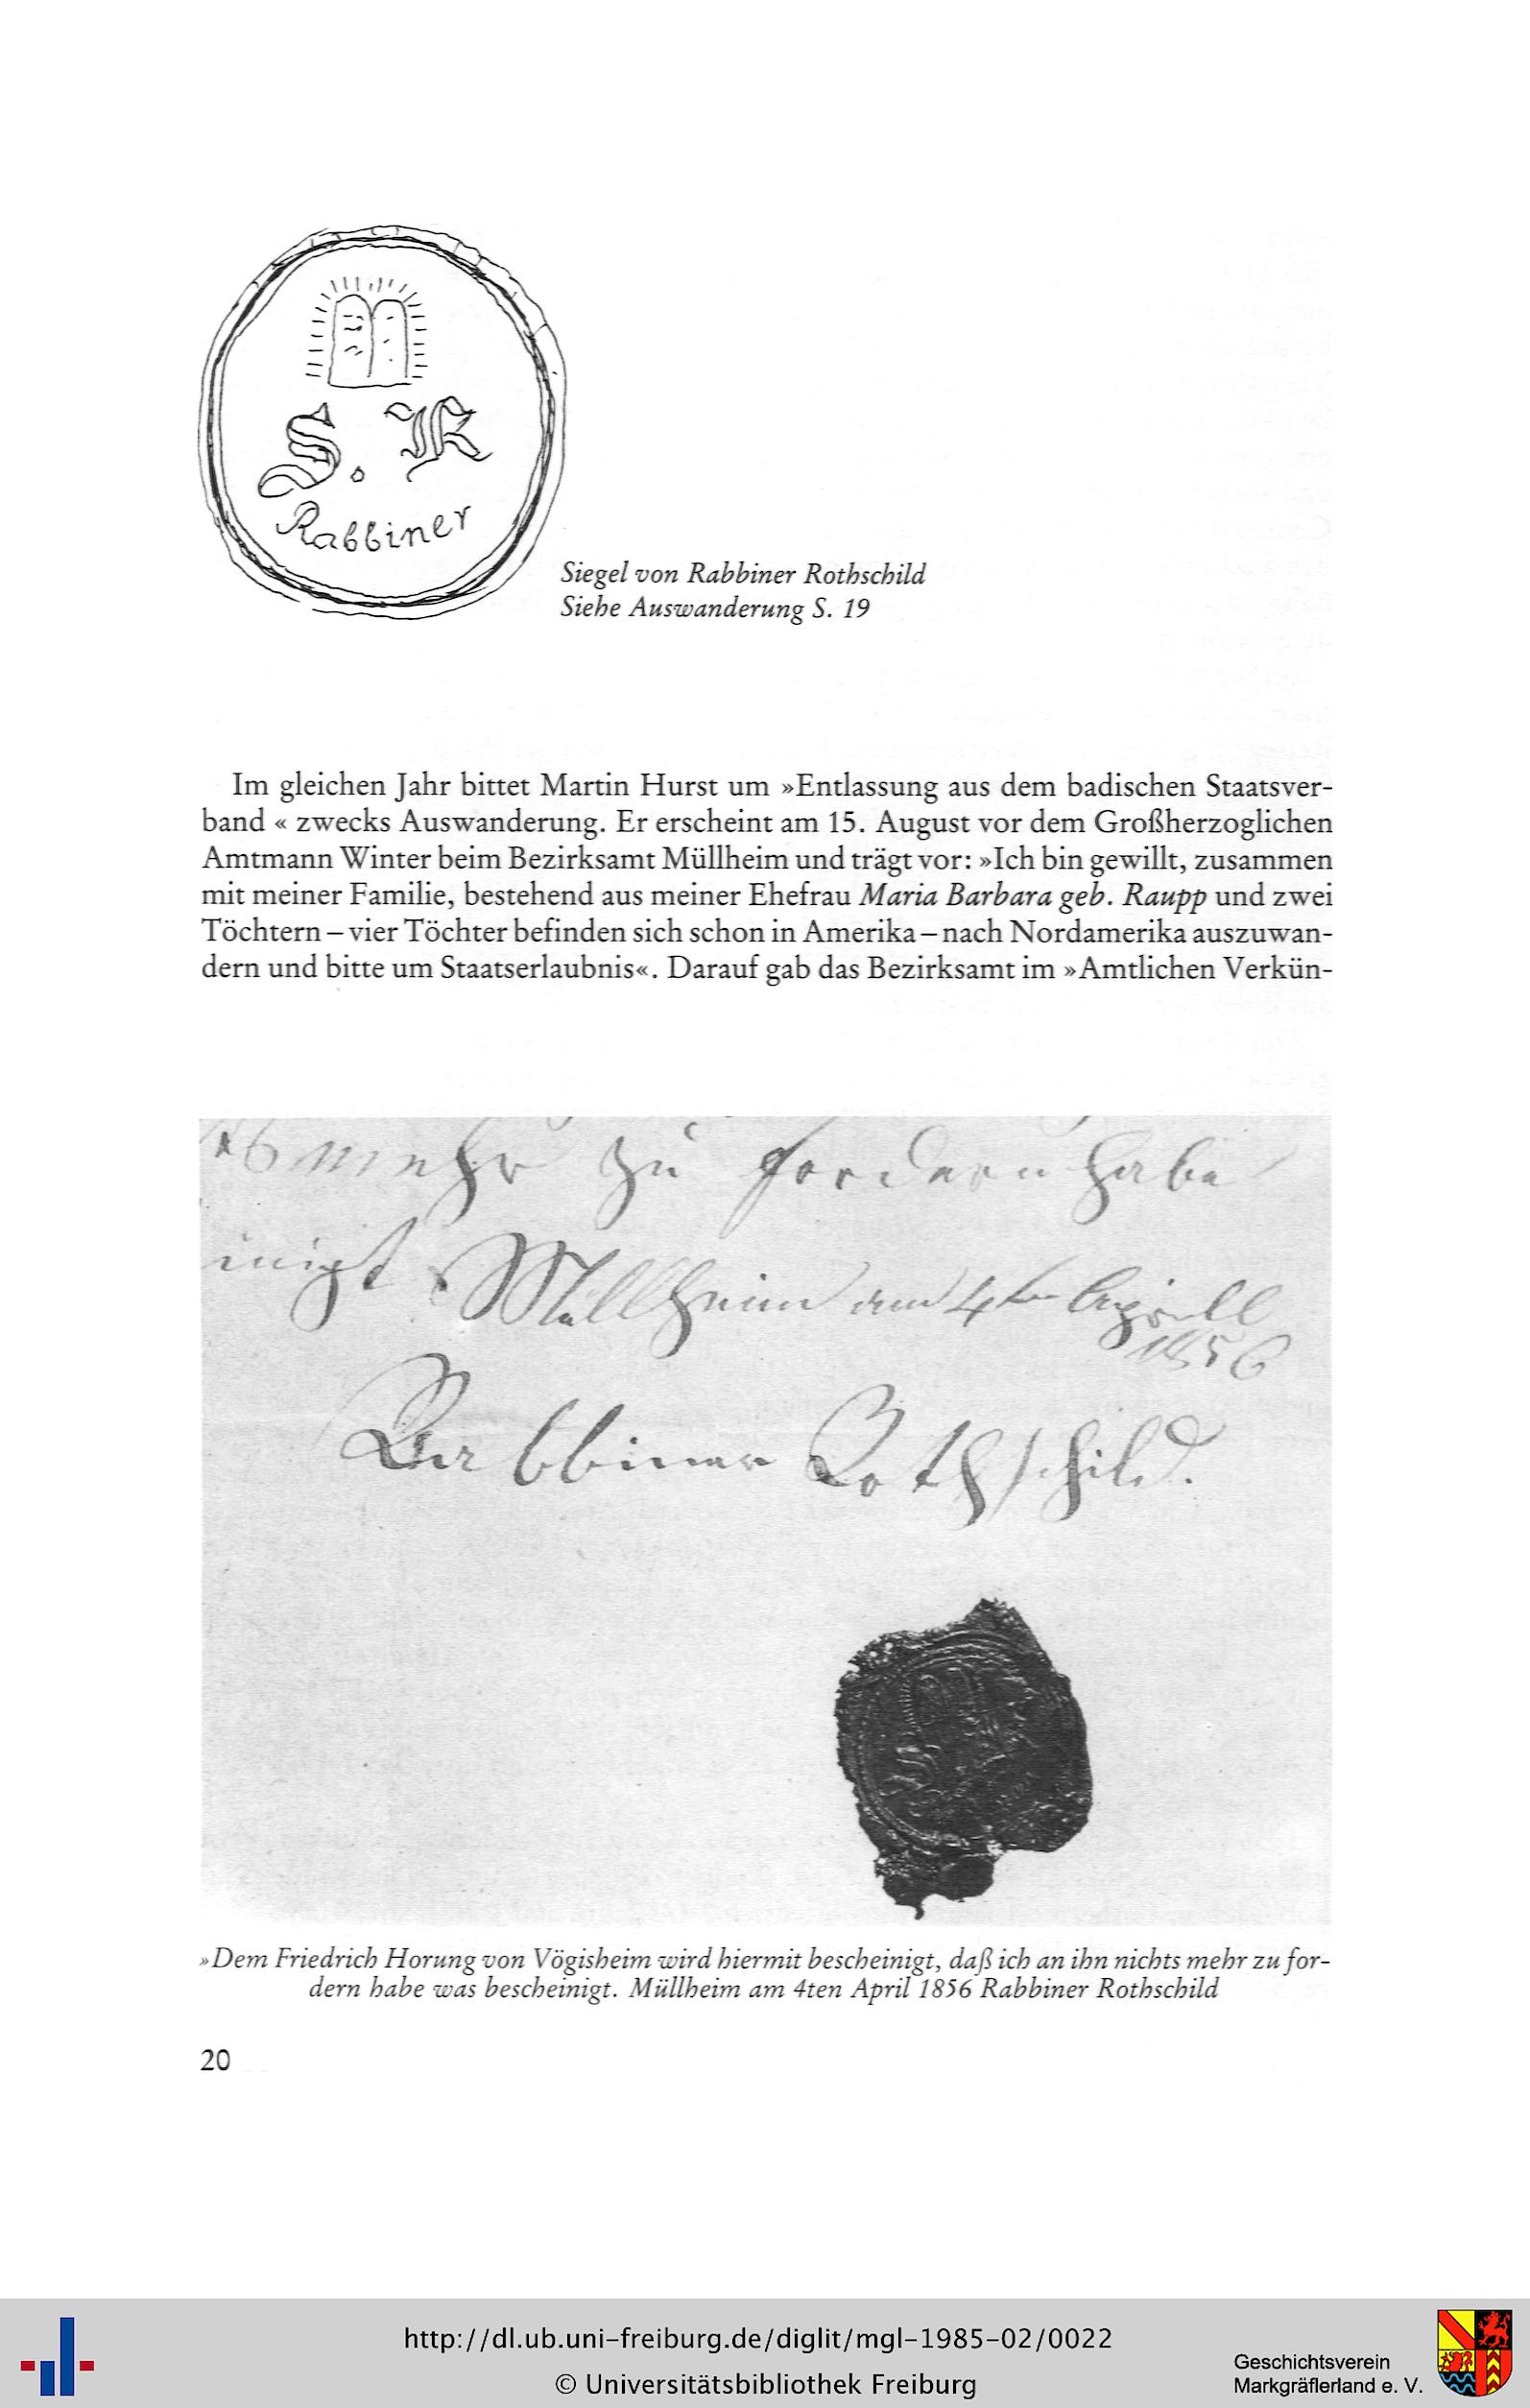 S. R
Rabbiner
Siegel von Rabbiner Rothschild
Siehe Auswanderung S. 19
Im gleichen Jahr bittet Martin Hurst um »Entlassung aus dem badischen Staatsver-
band « zwecks Auswanderung. Er erscheint am 15. August vor dem Großherzoglichen
Amtmann Winter beim Bezirksamt Müllheim und trägt vor: »Ich bin gewillt, zusammen
mit meiner Familie, bestehend aus meiner Ehefrau Maria Barbara geb. Raupp und zwei
Töchtern – vier Töchter befinden sich schon in Amerika – nach Nordamerika auszuwan-
dern und bitte um Staatserlaubnis«. Darauf gab das Bezirksamt im »Amtlichen Verkün-
mehr zu fordern habe
inigt Müllheim am 4ten Aprill
1856
Rabbiner Rothschild.
»Dem Friedrich Horung von Vögisheim wird hiermit bescheinigt, daß ich an ihn nichts mehr zu for-
dern habe was bescheinigt. Müllheim am 4ten April 1856 Rabbiner Rothschild
20
http://dl.ub.uni-freiburg.de/diglit/mgl-1985-02/0022
© Universitätsbibliothek Freiburg
Geschichtsverein
Markgräflerland e. V.